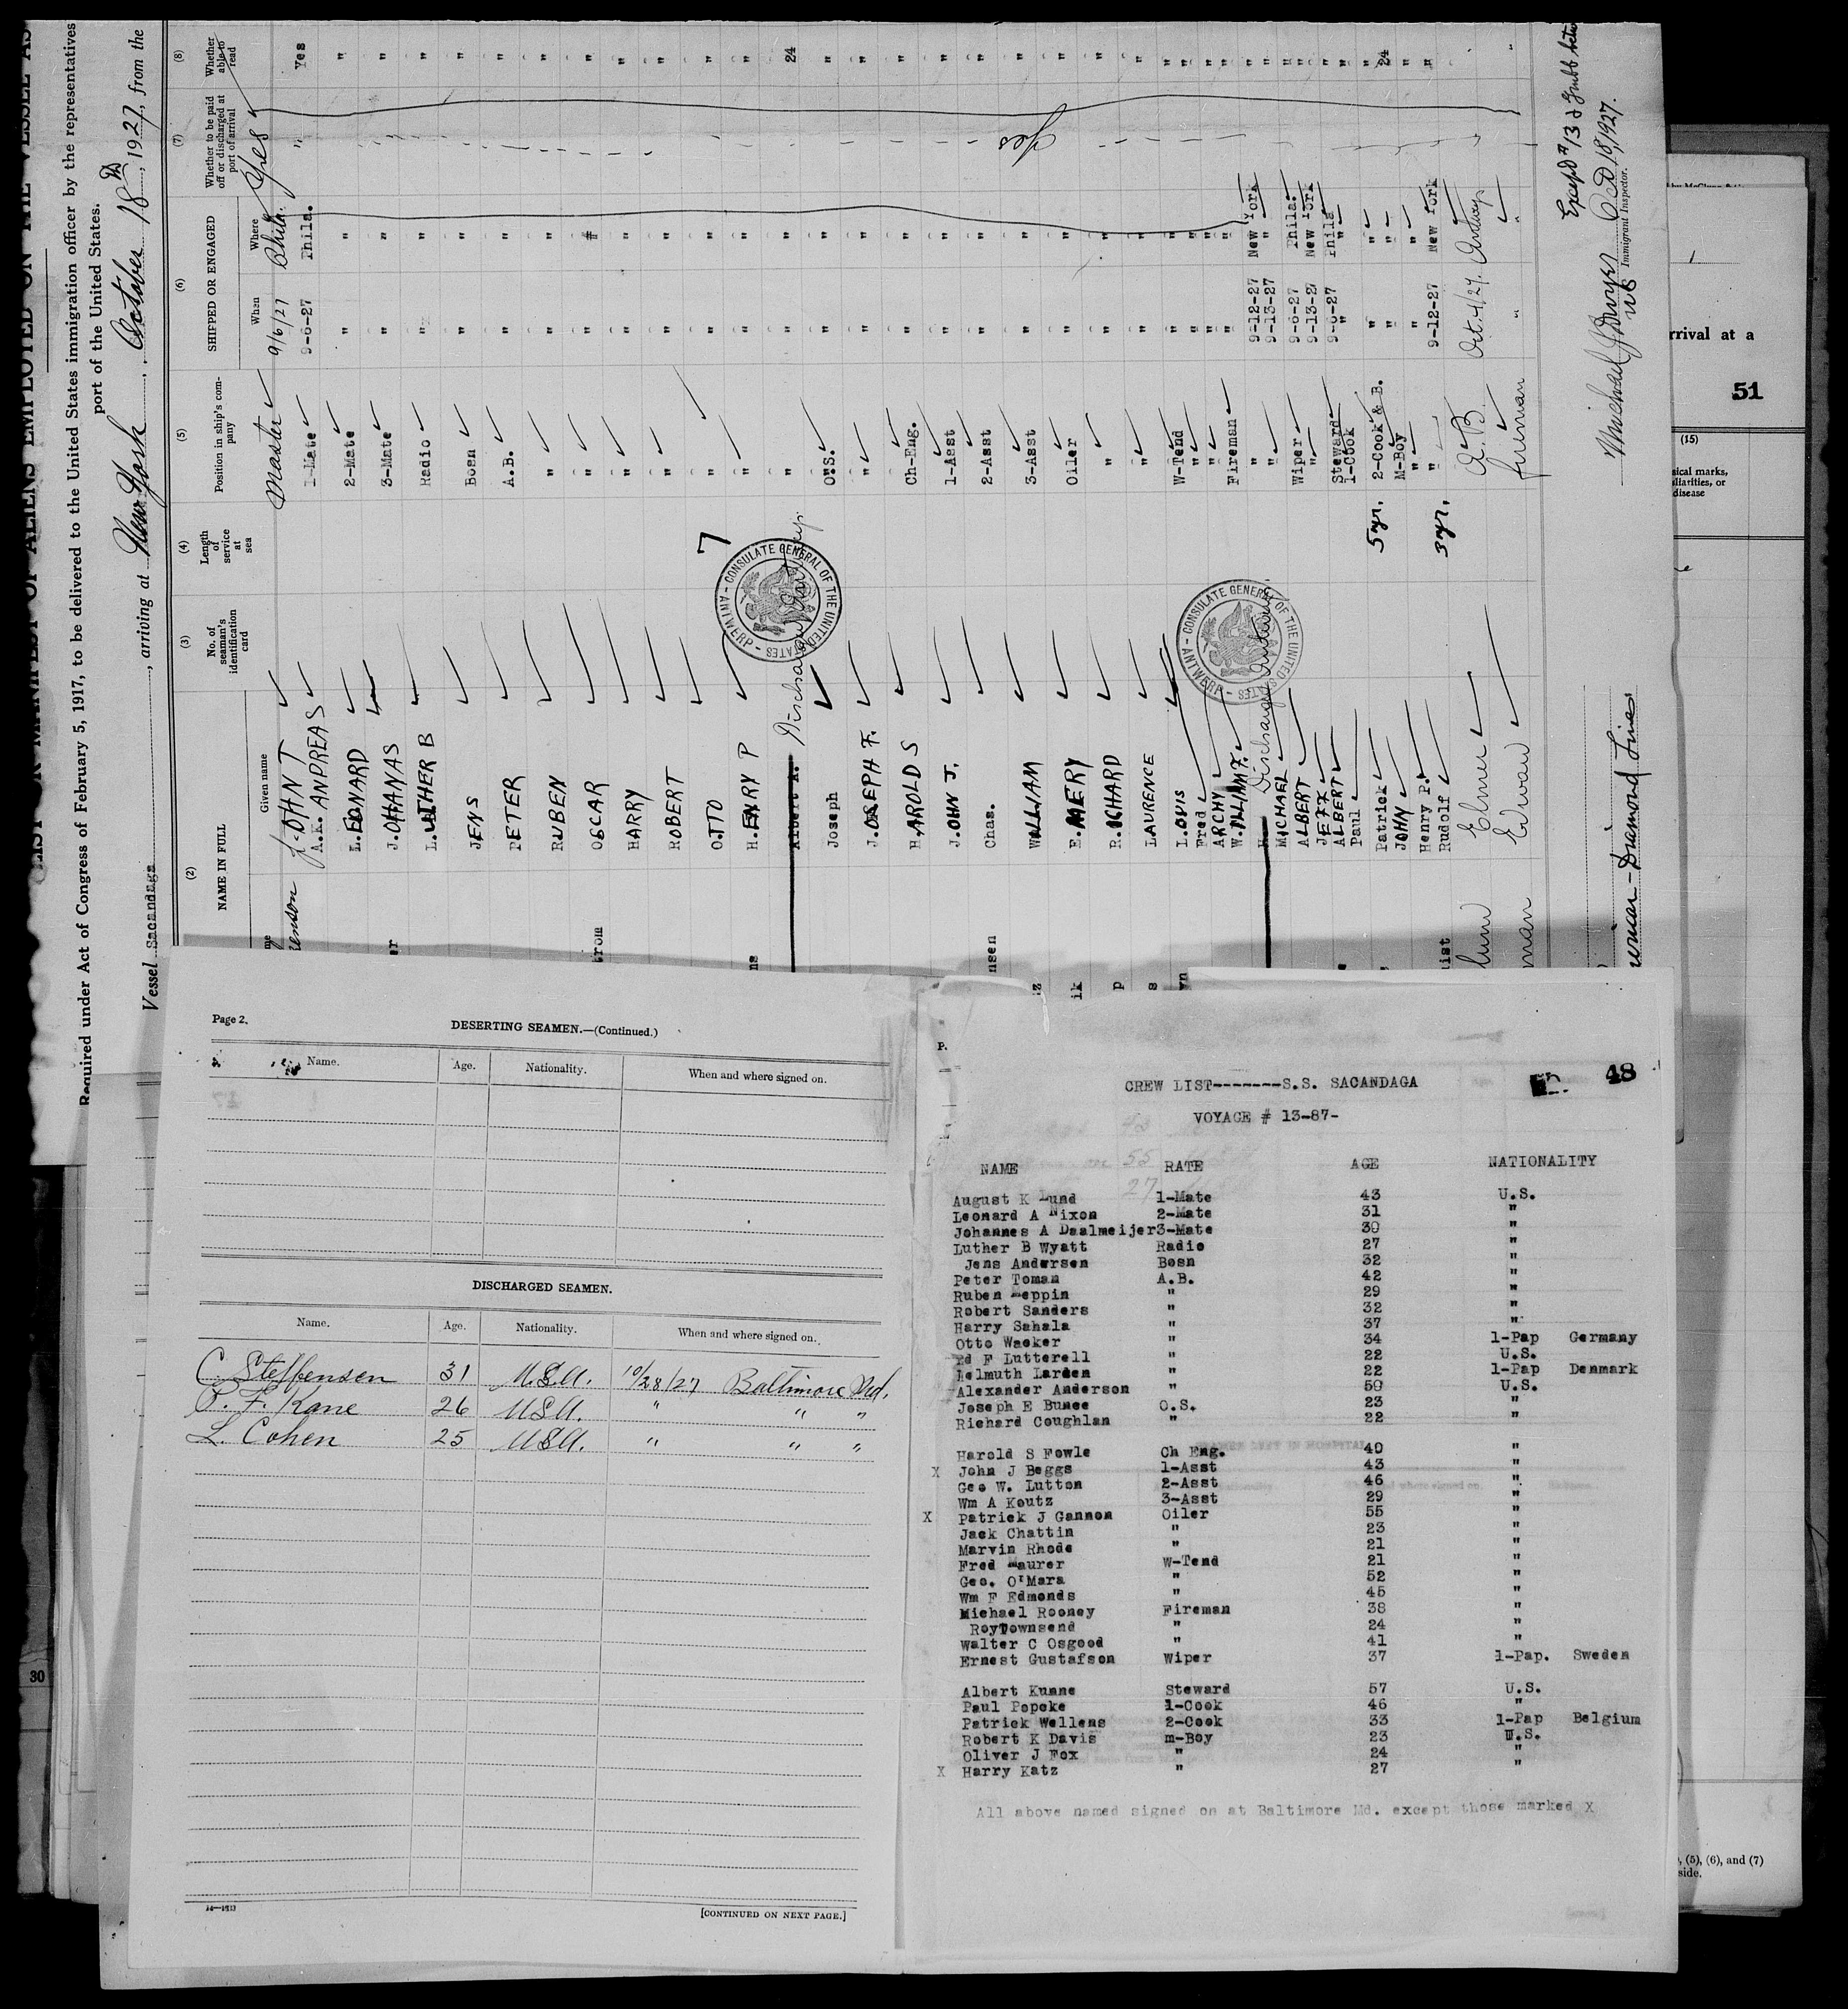 LIST OR MANIFEST OF ALIENS EMPLOYED ON THE VESSEL AS
Required under Act of Congress of February 5, 1917, to be delivered to the United States immigration officer by the representatives
port of the United States.
Vessel Sacandaga, arriving at New York, October 18th, 1927, from the
(2) (3) (4) (5) (6) (7) (8)
NAME IN FULL
Given name
No. of seaman's identification card
Length of service at sea
Position in ship's company
SHIPPED OR ENGAGED
When Where
Whether to be paid off or discharged at port of arrival
Whether able to read
enson JOHN T Master 9/6/27 Phila. Yes
A.K. ANDREAS 1-Mate 9-6-27 Phila. " Yes
LEONARD 2-Mate " " "
JOHANAS 3-Mate " " "
LUTHER B Radio " " "
JENS Bosn " " "
PETER A.B. " " "
RUBEN " " " "
OSCAR " " " "
HARRY " " " "
ROBERT " " " "
OTTO " " " "
HENRY P " " " "
Albert A. " " " 24
Joseph O.S. " " "
JOSEPH F. " " " "
HAROLD S Ch-Eng. " " "
JOHN J. 1-Asst " " "
Chas. 2-Asst " " "
WILLIAM 3-Asst " " "
EMERY Oiler " " "
RICHARD " " " "
LAURENCE " " " "
LOUIS W-Tend " " "
Fred " " " "
ARCHY " " " "
WILLIAM F. Fireman " " "
H. Discharged Antwerp " 9-12-27 New York "
MICHAEL " 9-13-27 " "
ALBERT Wiper 9-6-27 Phila. "
JEFF " 9-13-27 New York "
ALBERT Steward 9-6-27 Phila "
Paul 1-Cook " " "
Patrick 5 yr. 2-Cook & B. " " "
JOHN M-Boy " " 24
Henry P. " " " "
Rudolf 3 yr. " 9-12-27 New York "
Elmer A.B. Oct. 4/27. Antwerp
Edwan fireman " " "
7
CONSULATE GENERAL OF THE UNITED STATES - ANTWERP -
CONSULATE GENERAL OF THE UNITED STATES - ANTWERP -
Yes
Except #13
Oct 18, 1927.
Immigrant Inspector.
Diamond Line
rrival at a
51
(15)
ical marks,
liarities, or
disease
30
, (5), (6), and (7)
side.
Page 2.
DESERTING SEAMEN.—(Continued.)
Name. Age. Nationality. When and where signed on.
DISCHARGED SEAMEN.
Name. Age. Nationality. When and where signed on.
C. Steffensen 31 U.S.A. 10/28/27 Baltimore Md.
P. F. Kane 26 U.S.A. " " "
L. Cohen 25 U.S.A. " " "
[CONTINUED ON NEXT PAGE.]
P.
48
CREW LIST-------S.S. SACANDAGA
VOYAGE # 13-87-
NAME RATE AGE NATIONALITY
August K Lund 1-Mate 43 U.S.
Leonard A Nixon 2-Mate 31 "
Johannes A Daalmeijer 3-Mate 30 "
Luther B Wyatt Radio 27 "
Jens Andersen Bosn 32 "
Peter Toman A.B. 42 "
Ruben Meppin " 29 "
Robert Sanders " 32 "
Harry Sahala " 37 "
Otto Wacker " 34 1-Pap Germany
Ed F Lutterell " 22 U.S.
Helmuth Larden " 22 1-Pap Denmark
Alexander Anderson " 50 U.S.
Joseph E Bunce O.S. 23 "
Richard Coughlan " 22 "
Harold S Fowle Ch Eng. 40 "
X John J Beggs 1-Asst 43 "
Geo W. Lutton 2-Asst 46 "
Wm A Koutz 3-Asst 29 "
X Patrick J Gannon Oiler 55 "
Jack Chattin " 23 "
Marvin Rhode " 21 "
Fred Maurer W-Tend 21 "
Geo. O'Mara " 52 "
Wm F Edmonds " 45 "
Michael Rooney Fireman 38 "
Roy Townsend " 24 "
Walter C Osgood " 41 "
Ernest Gustafson Wiper 37 1-Pap. Sweden
Albert Kunne Steward 57 U.S.
Paul Popcke 1-Cook 46 "
Patrick Wellens 2-Cook 33 1-Pap Belgium
Robert K Davis m-Boy 23 U.S.
Oliver J Fox " 24 "
X Harry Katz " 27 "
All above named signed on at Baltimore Md. except those marked X